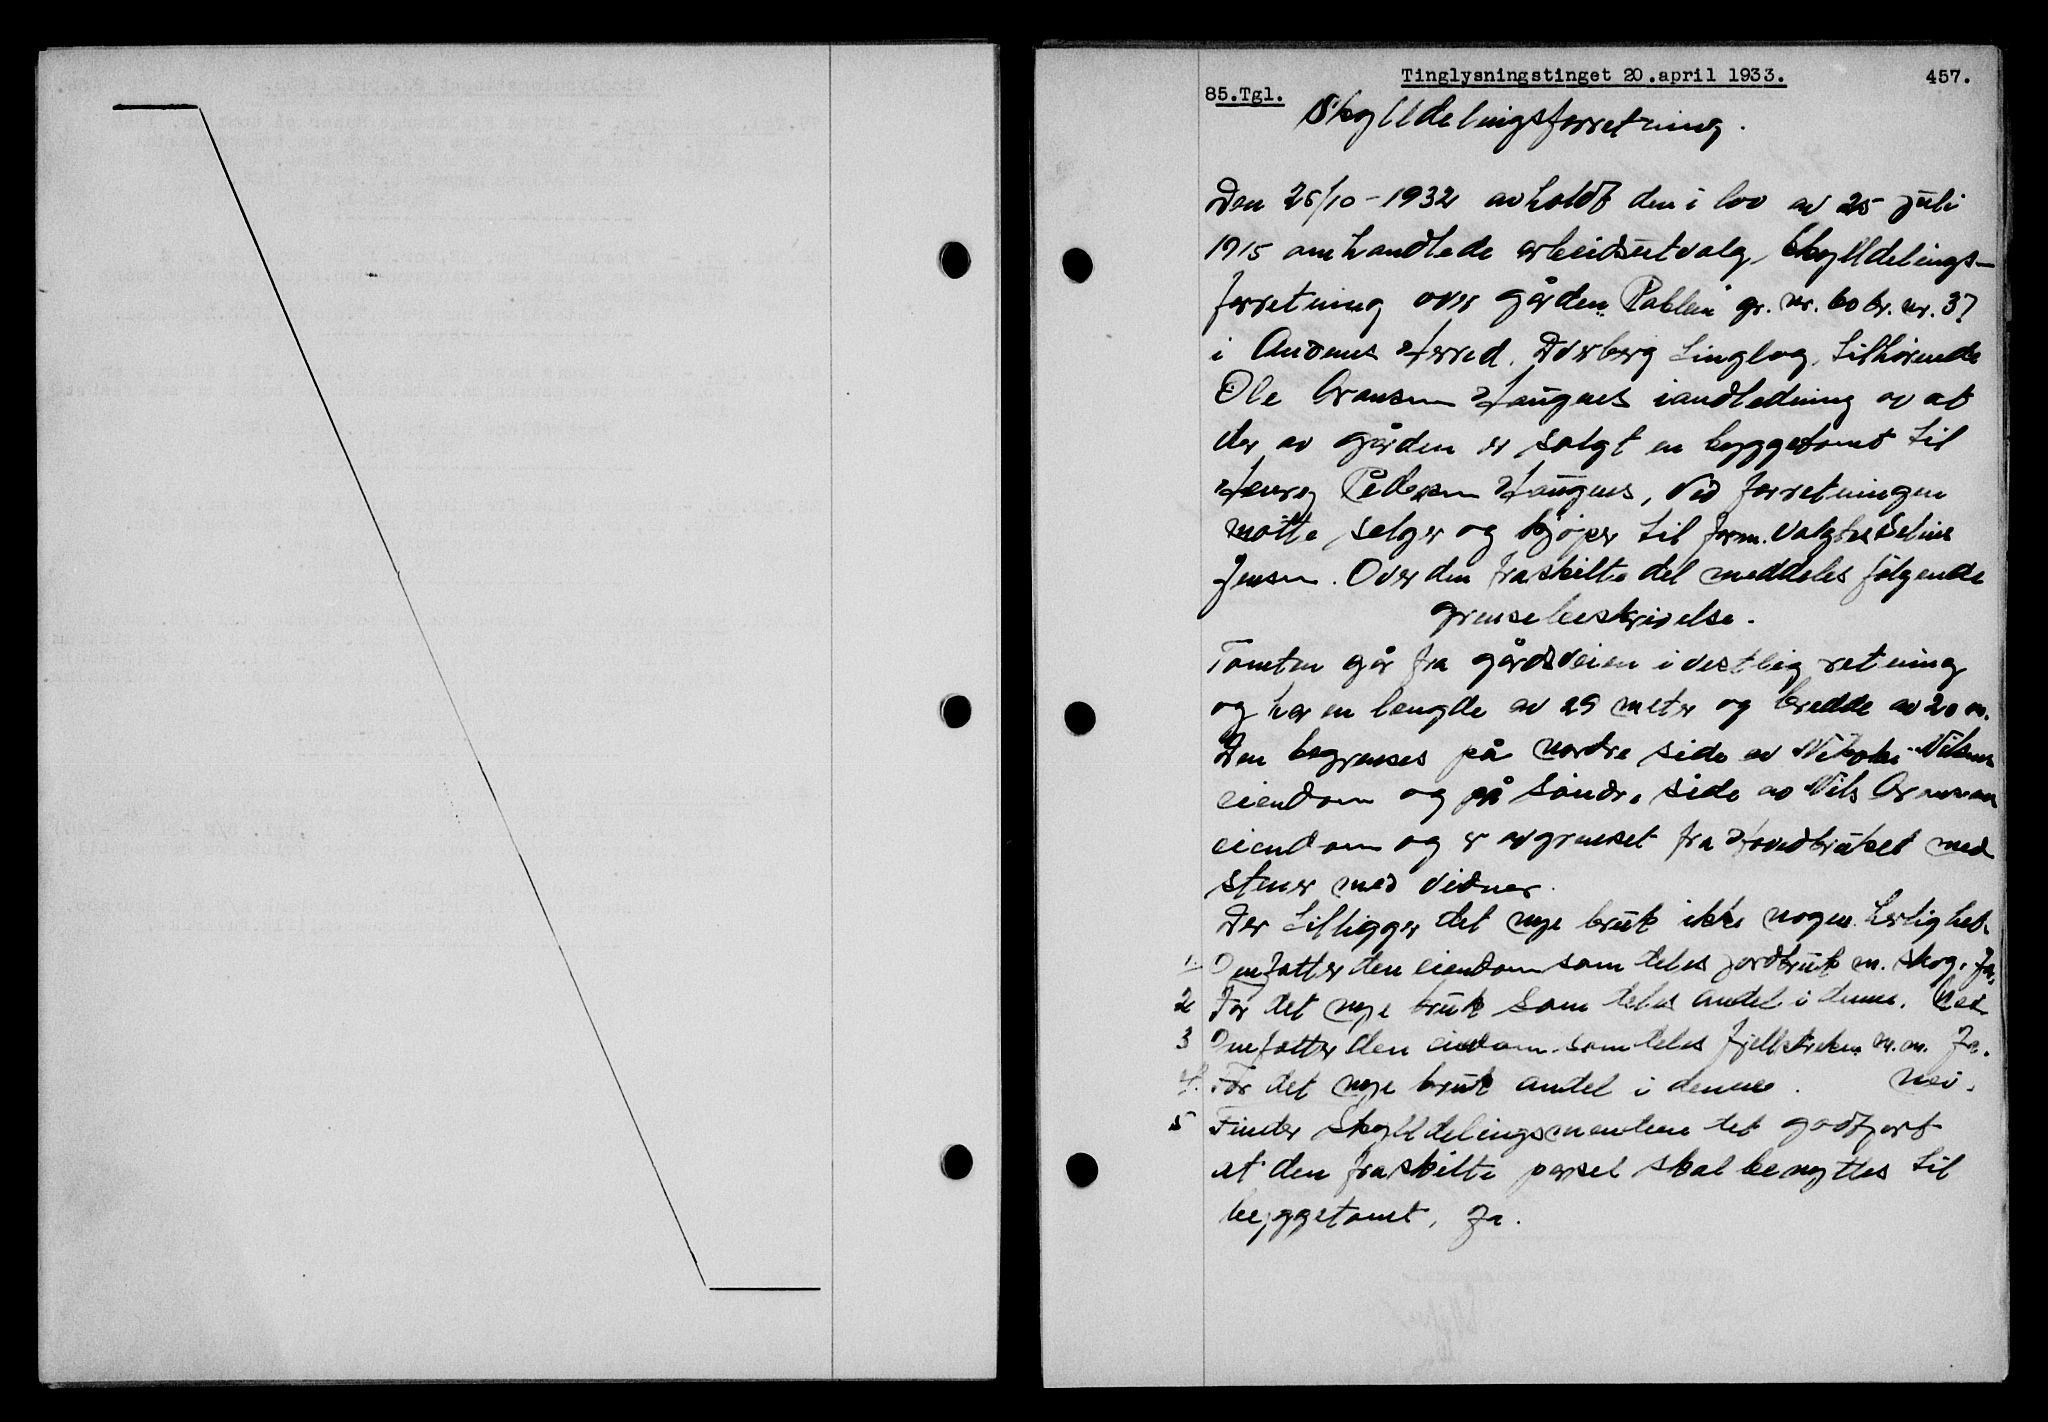 Tinglysningstinget 20.april 1933. 457.
85.Tgl.
Skylldelingsforretning.
Den 26/10-1932 avholdt den i lov av 25 juli
1915 omhandlede arbeidsutvalg, Skylldelings-
forretning over gården gr. nr. 60 br. nr. 37
i Andenes Herred, Dverberg tinglag, tilhørende
Ole Haugnes iandledning av at
der av gården er solgt en byggetomt til
Henry Pedersen Haugnes, Ved forretningen
møtte selger og kjøper til form. valgtes Selius
Jensen. Over den fraskilte del meddeles følgende
grensebeskrivelse.
Tomten går fra gårdsveien i vestlig retning
og har en længde av 29 meter og bredde av 20 m.
Den begrenses på nordre side av Nikolai Nilsens
eiendom og på søndre side av Nils
eiendom og er avgrenset fra Hovedbruket med
stener med vidner.
Der tilligger det nye bruk ikke nogen herlighet.
1. Omfatter den eiendom som deles jordbruk m. skog. Ja.
2 Får det nye bruk som deles andel i denne. Nei
3 Omfatter den eiedom som deles fjellstrekn. m.m. Ja.
4. Får det nye bruk andel i denne. Nei.
5 Finder Skylldelingsmendene det godtjort
at den fraskilte parsel skal benyttes til
byggetomt, Ja.